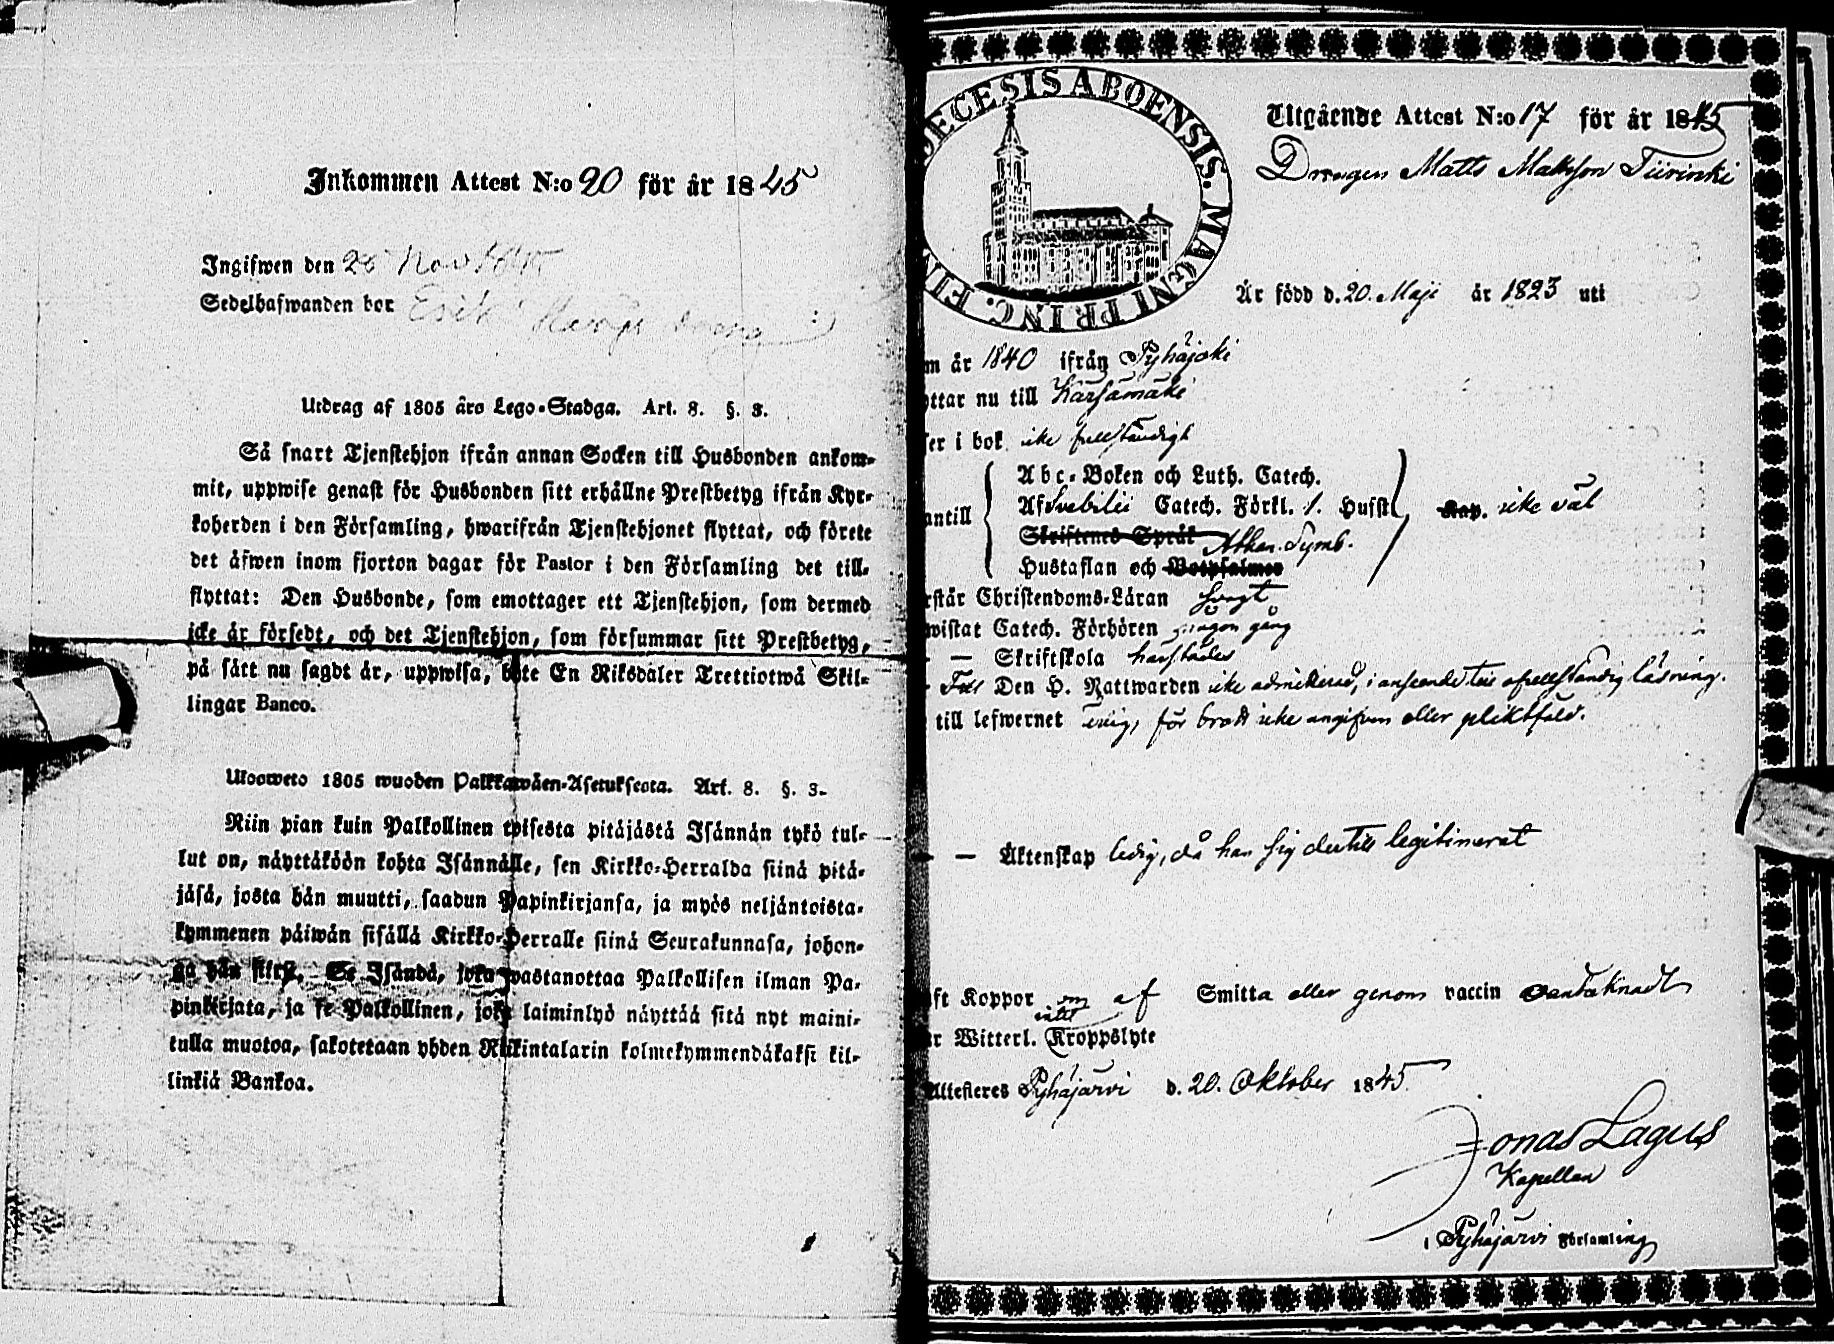 Inkommen Attest N:o 20 för år 1845
Ingifwen den 28 Nov 1845
Sedelhafwanden bor Erik
Utdrag af 1805 års Lego-Stadga. Art. 8. §. 3.
Så snart Tjenstehjon ifrån annan Socken till Husbonden ankom-
mit, uppwise genast för Husbonden sitt erhållne Prestbetyg ifrån Kyr-
koherden i den Församling, hwarifrån Tjenstehjonet flyttat, och förete
det äfwen inom fjorton dagar för Pastor i den Församling det till-
flyttat: Den Husbonde, som emottager ett Tjenstehjon, som dermed
icke är försedt, och det Tjenstehjon, som försummar sitt Prestbetyg,
på sätt nu sagdt är, uppwisa, böte En Riksdaler Trettiotwå Skil-
lingar Banco.
Ulosweto 1805 wuoden Palkkawäen-Asetuksesta. Art. 8. §. 3.
Niin pian kuin Palkollinen toisesta pitäjästä Isännän tykö tul-
lut on, näyttäköön kohta Isännälle, sen Kirkko-Herralda siinä pitä-
jäsä, josta hän muutti, saadun Papinkirjansa, ja myös neljäntoista-
kymmenen päiwän sisällä Kirkko-Herralle siinä Seurakunnasa, johon-
ga hän siirst. Se Isändä, joka wastanottaa Palkollisen ilman Pa-
pinkirjata, ja se Palkollinen, joka laiminlyö näyttää sitä nyt maini-
tulla muotoa, sakotetaan yhden Riikintalarin kolmekymmendäkaksi kil-
linkiä Bankoa.
DECESIS ABOENSIS. MAGNI PRINC. FIN
Utgående Attest N:o 17 för år 1845
Drengen Matts Mattsson Tiirinki
Är född d. 20. Maji år 1823 uti
m år 1840 ifrån Pyhäjoki
ttar nu till Kärsämäki
ser i bok icke fullständigt
antill
Abc-Boken och Luth. Catech.
Af Svebilii Catech. Förkl. 1. Husst
Skriftenes Språk Athan. Symb.
Hustaflan och Botpsalmer
Kap. icke väl
rstår Christendoms-Läran svagt
wistat Catech. Förhören någon gång
— Skriftskola härstädes
Till Den H. Nattwarden icke admitterad, i anseende till ofullständig läsning.
till lefwernet enig, för brott icke angifven eller pliktfäld.
— Äktenskap ledig, då han sig dertill legitimerat
ft Koppor om af Smitta eller genom vaccin oantecknadt
r Witterl. Kroppslyte
Attesteres Pyhäjärvi d. 20. Oktober 1845.
Jonas Lagus
Kapellan
i Pyhäjärvi Församling